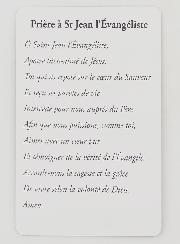 Prière à St Jean l'Évangéliste
Ô Saint Jean l'Évangéliste,
Apôtre bien-aimé de Jésus,
Toi qui as reposé sur le cœur du Sauveur
Et reçu ses paroles de vie
Intercède pour nous auprès du Père
Afin que nous puissions, comme toi,
Aimer avec un cœur pur
Et témoigner de la vérité de l'Évangile.
la sagesse et la grâce
De vivre selon la volonté de Dieu.
Amen